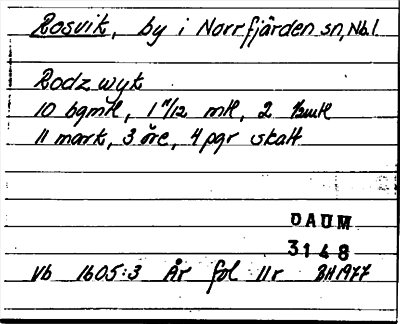 Rosvik, by i Norrfjärden sn, Nb.l.
Rodz wyk
10 bgmtl, 1 11/12 mtl, 2 ½mtl
11 mark, 3 öre, 4 pgr skatt
DAUM
3148
Vb 1605:3 År fol 11r BH1977